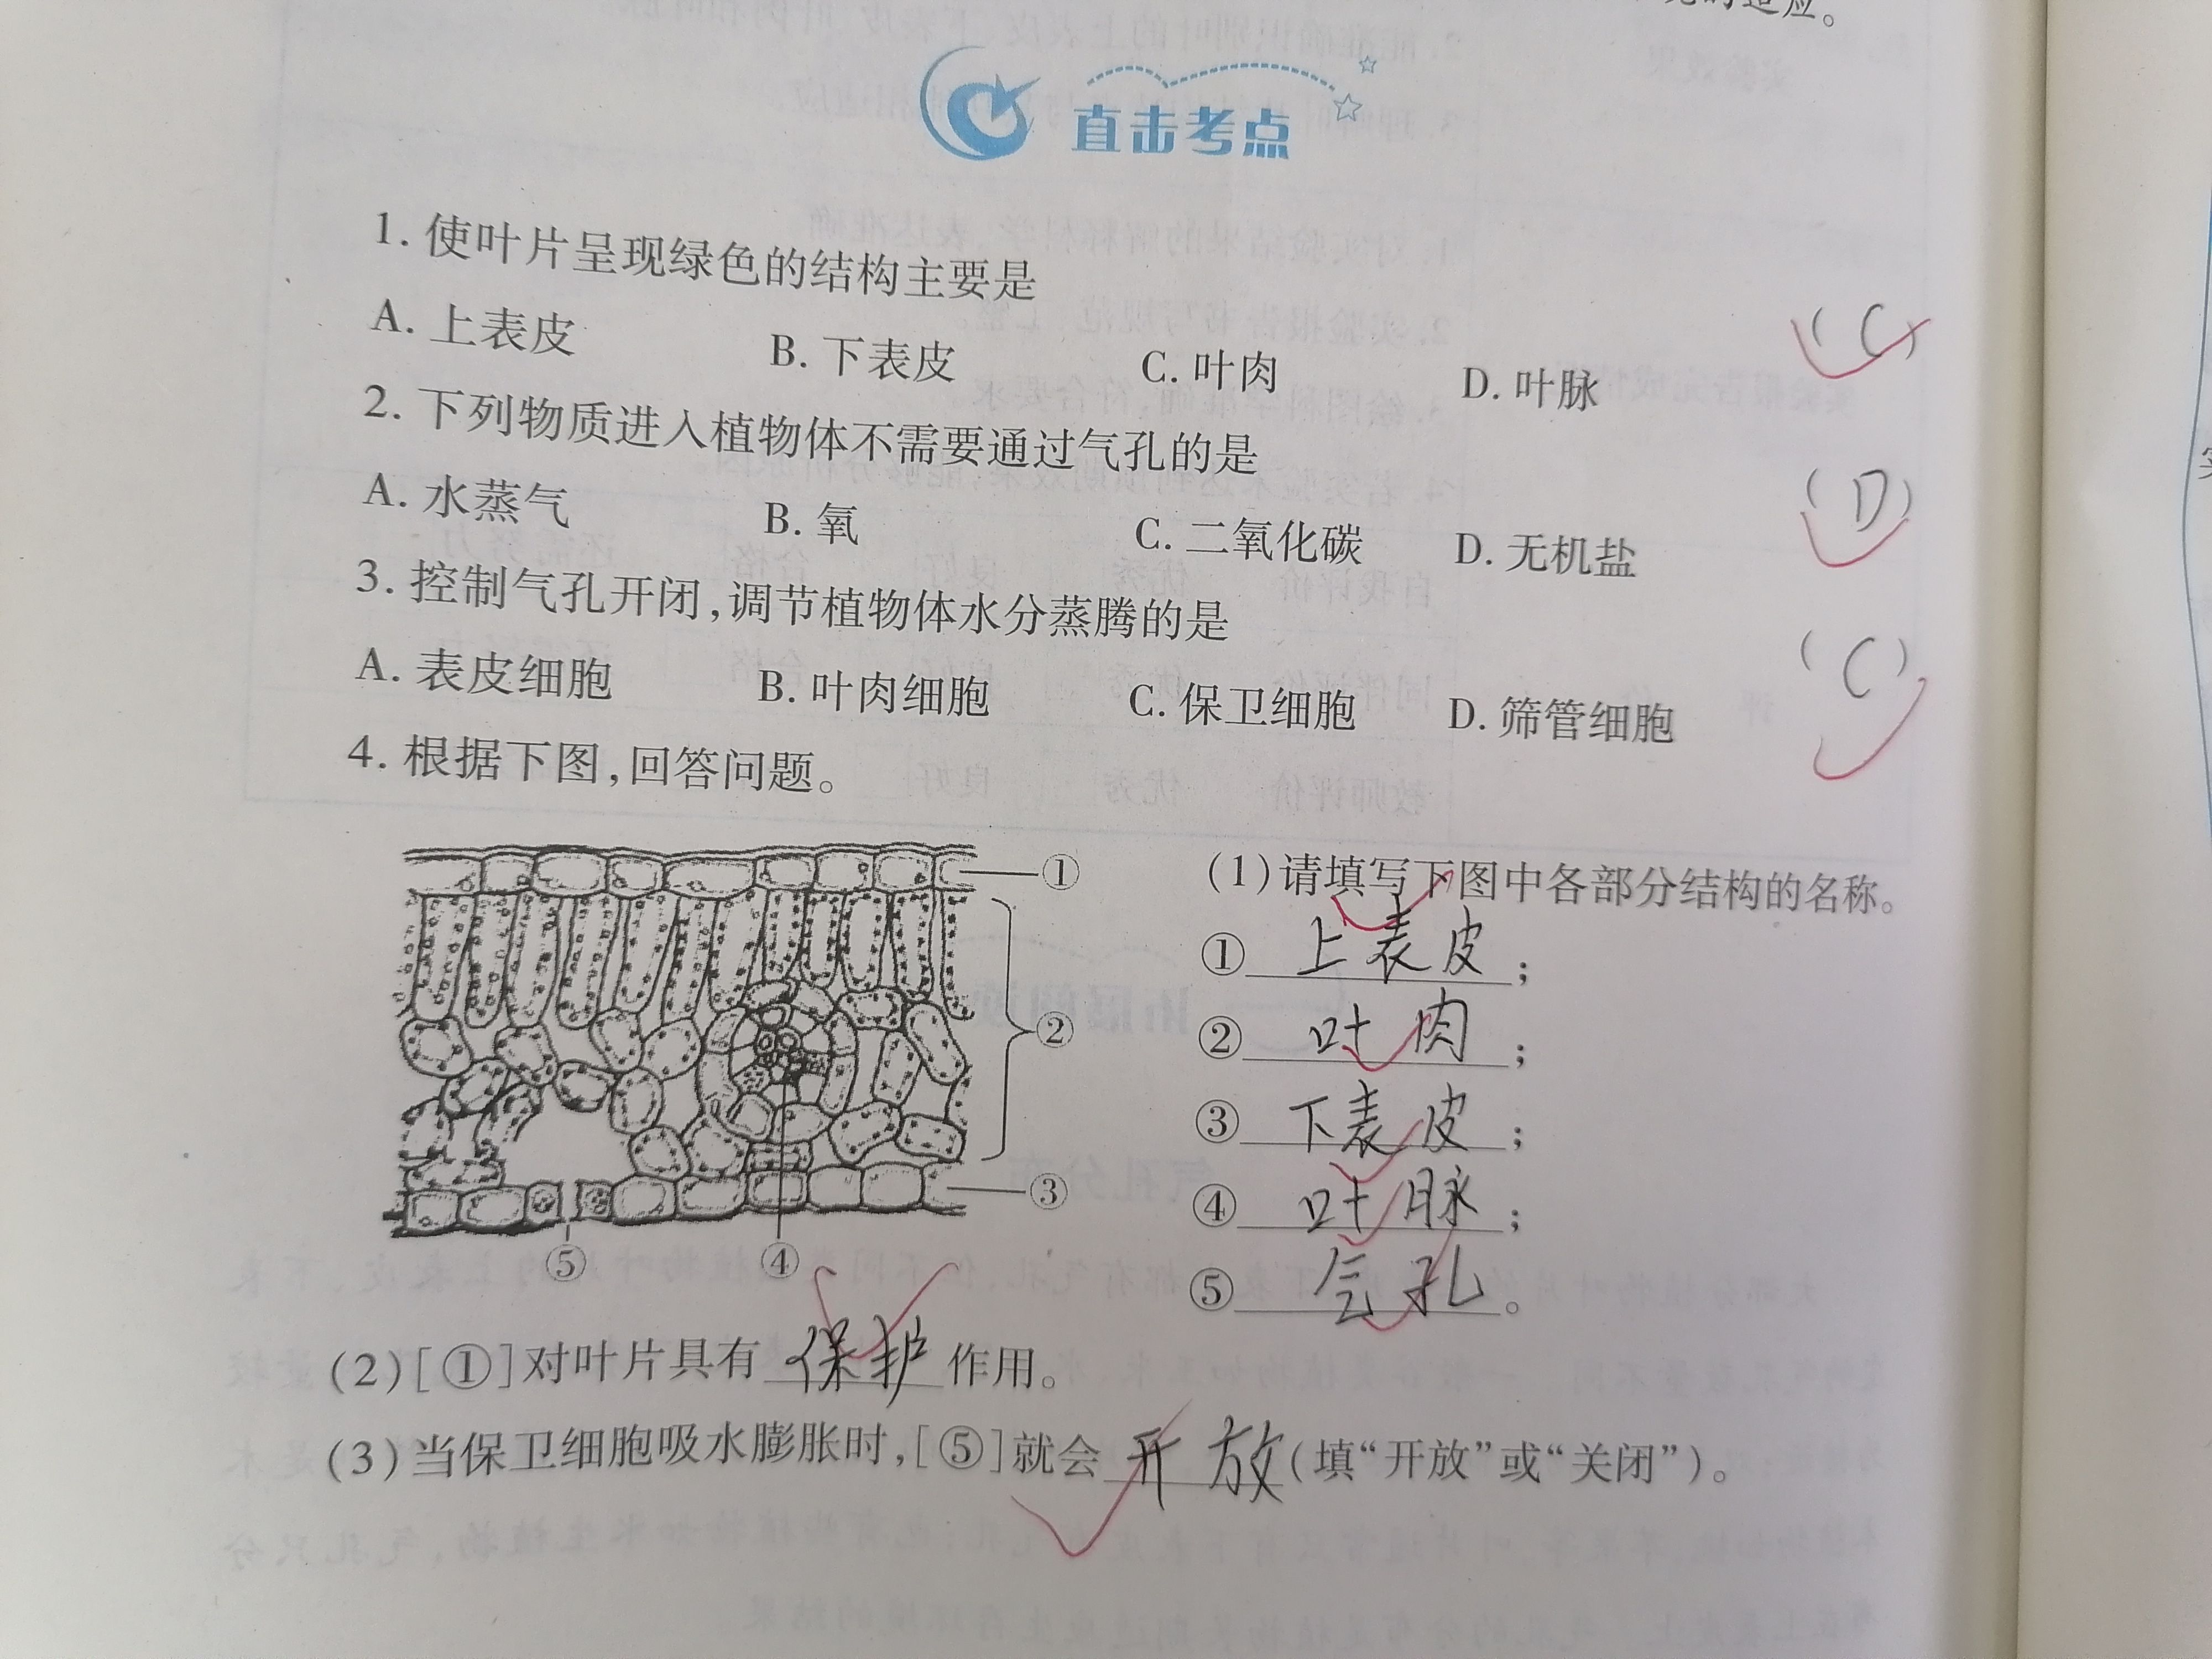 的适应。
直击考点
1. 使叶片呈现绿色的结构主要是
(C)
A. 上表皮 B. 下表皮 C. 叶肉 D. 叶脉
2. 下列物质进入植物体不需要通过气孔的是
(D)
A. 水蒸气 B. 氧 C. 二氧化碳 D. 无机盐
3. 控制气孔开闭,调节植物体水分蒸腾的是
(C)
A. 表皮细胞 B. 叶肉细胞 C. 保卫细胞 D. 筛管细胞
4. 根据下图,回答问题。
①
②
③
④
⑤
(1)请填写下图中各部分结构的名称。
① 上表皮 ;
② 叶肉 ;
③ 下表皮 ;
④ 叶脉 ;
⑤ 气孔 。
(2)[①]对叶片具有 保护 作用。
(3)当保卫细胞吸水膨胀时,[⑤]就会 开放 (填“开放”或“关闭”)。